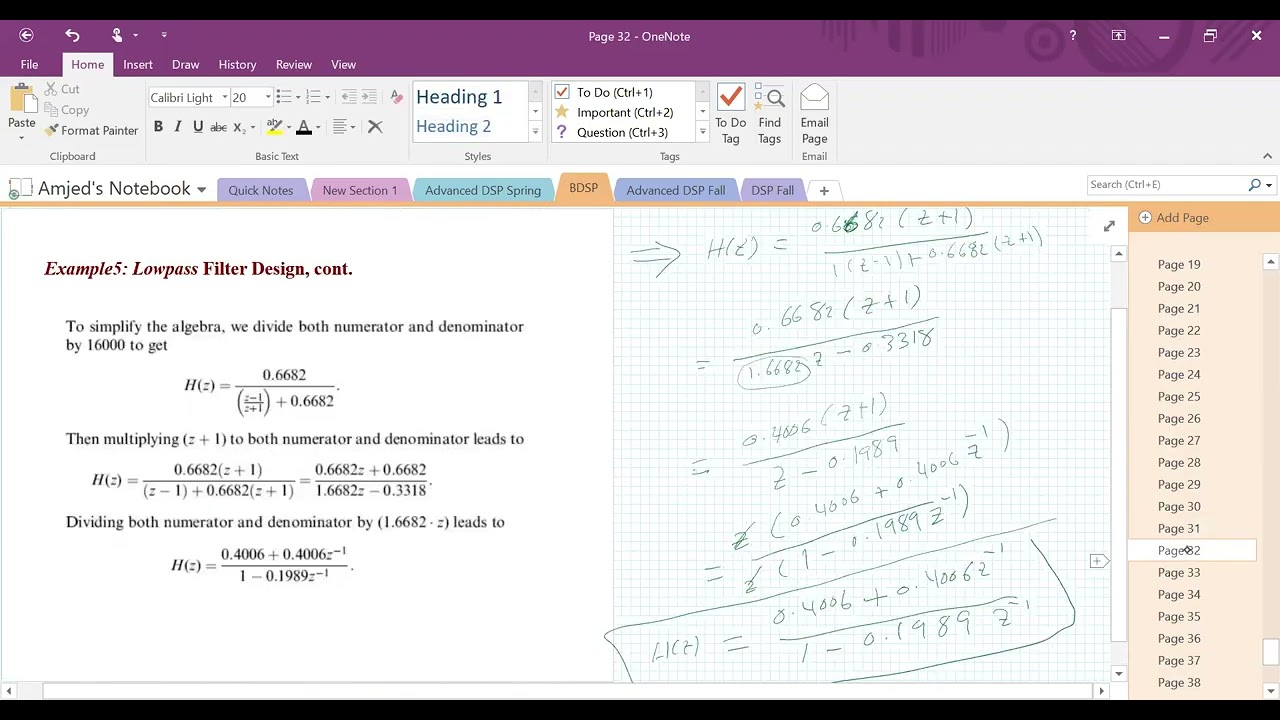 Page 32 - OneNote
?
File Home Insert Draw History Review View
Paste
Cut
Copy
Format Painter
Clipboard
Calibri Light 20
B I U abc X₂ A
Basic Text
Heading 1
Heading 2
Styles
To Do (Ctrl+1)
Important (Ctrl+2)
? Question (Ctrl+3)
To Do Tag
Find Tags
Tags
Email Page
Email
Amjed's Notebook
Quick Notes New Section 1 Advanced DSP Spring BDSP Advanced DSP Fall DSP Fall +
Search (Ctrl+E)
Example5: Lowpass Filter Design, cont.
To simplify the algebra, we divide both numerator and denominator
by 16000 to get
H(z) = 0.6682 / ((z−1)/(z+1)) + 0.6682 .
Then multiplying (z + 1) to both numerator and denominator leads to
H(z) = 0.6682(z + 1) / (z − 1) + 0.6682(z + 1) = 0.6682z + 0.6682 / 1.6682z − 0.3318 .
Dividing both numerator and denominator by (1.6682 · z) leads to
H(z) = 0.4006 + 0.4006z⁻¹ / 1 − 0.1989z⁻¹ .
⇒ H(z) = 0.6682 (z+1) / 1(z-1) + 0.6682 (z+1)
= 0.6682 (z+1) / 1.6682 z - 0.3318
= 0.4006 (z+1) / z - 0.1989
= z (0.4006 + 0.4006 z⁻¹) / z (1 - 0.1989 z⁻¹)
H(z) = 0.4006 + 0.4006 z⁻¹ / 1 - 0.1989 z⁻¹
Add Page
Page 19
Page 20
Page 21
Page 22
Page 23
Page 24
Page 25
Page 26
Page 27
Page 28
Page 29
Page 30
Page 31
Page 32
Page 33
Page 34
Page 35
Page 36
Page 37
Page 38